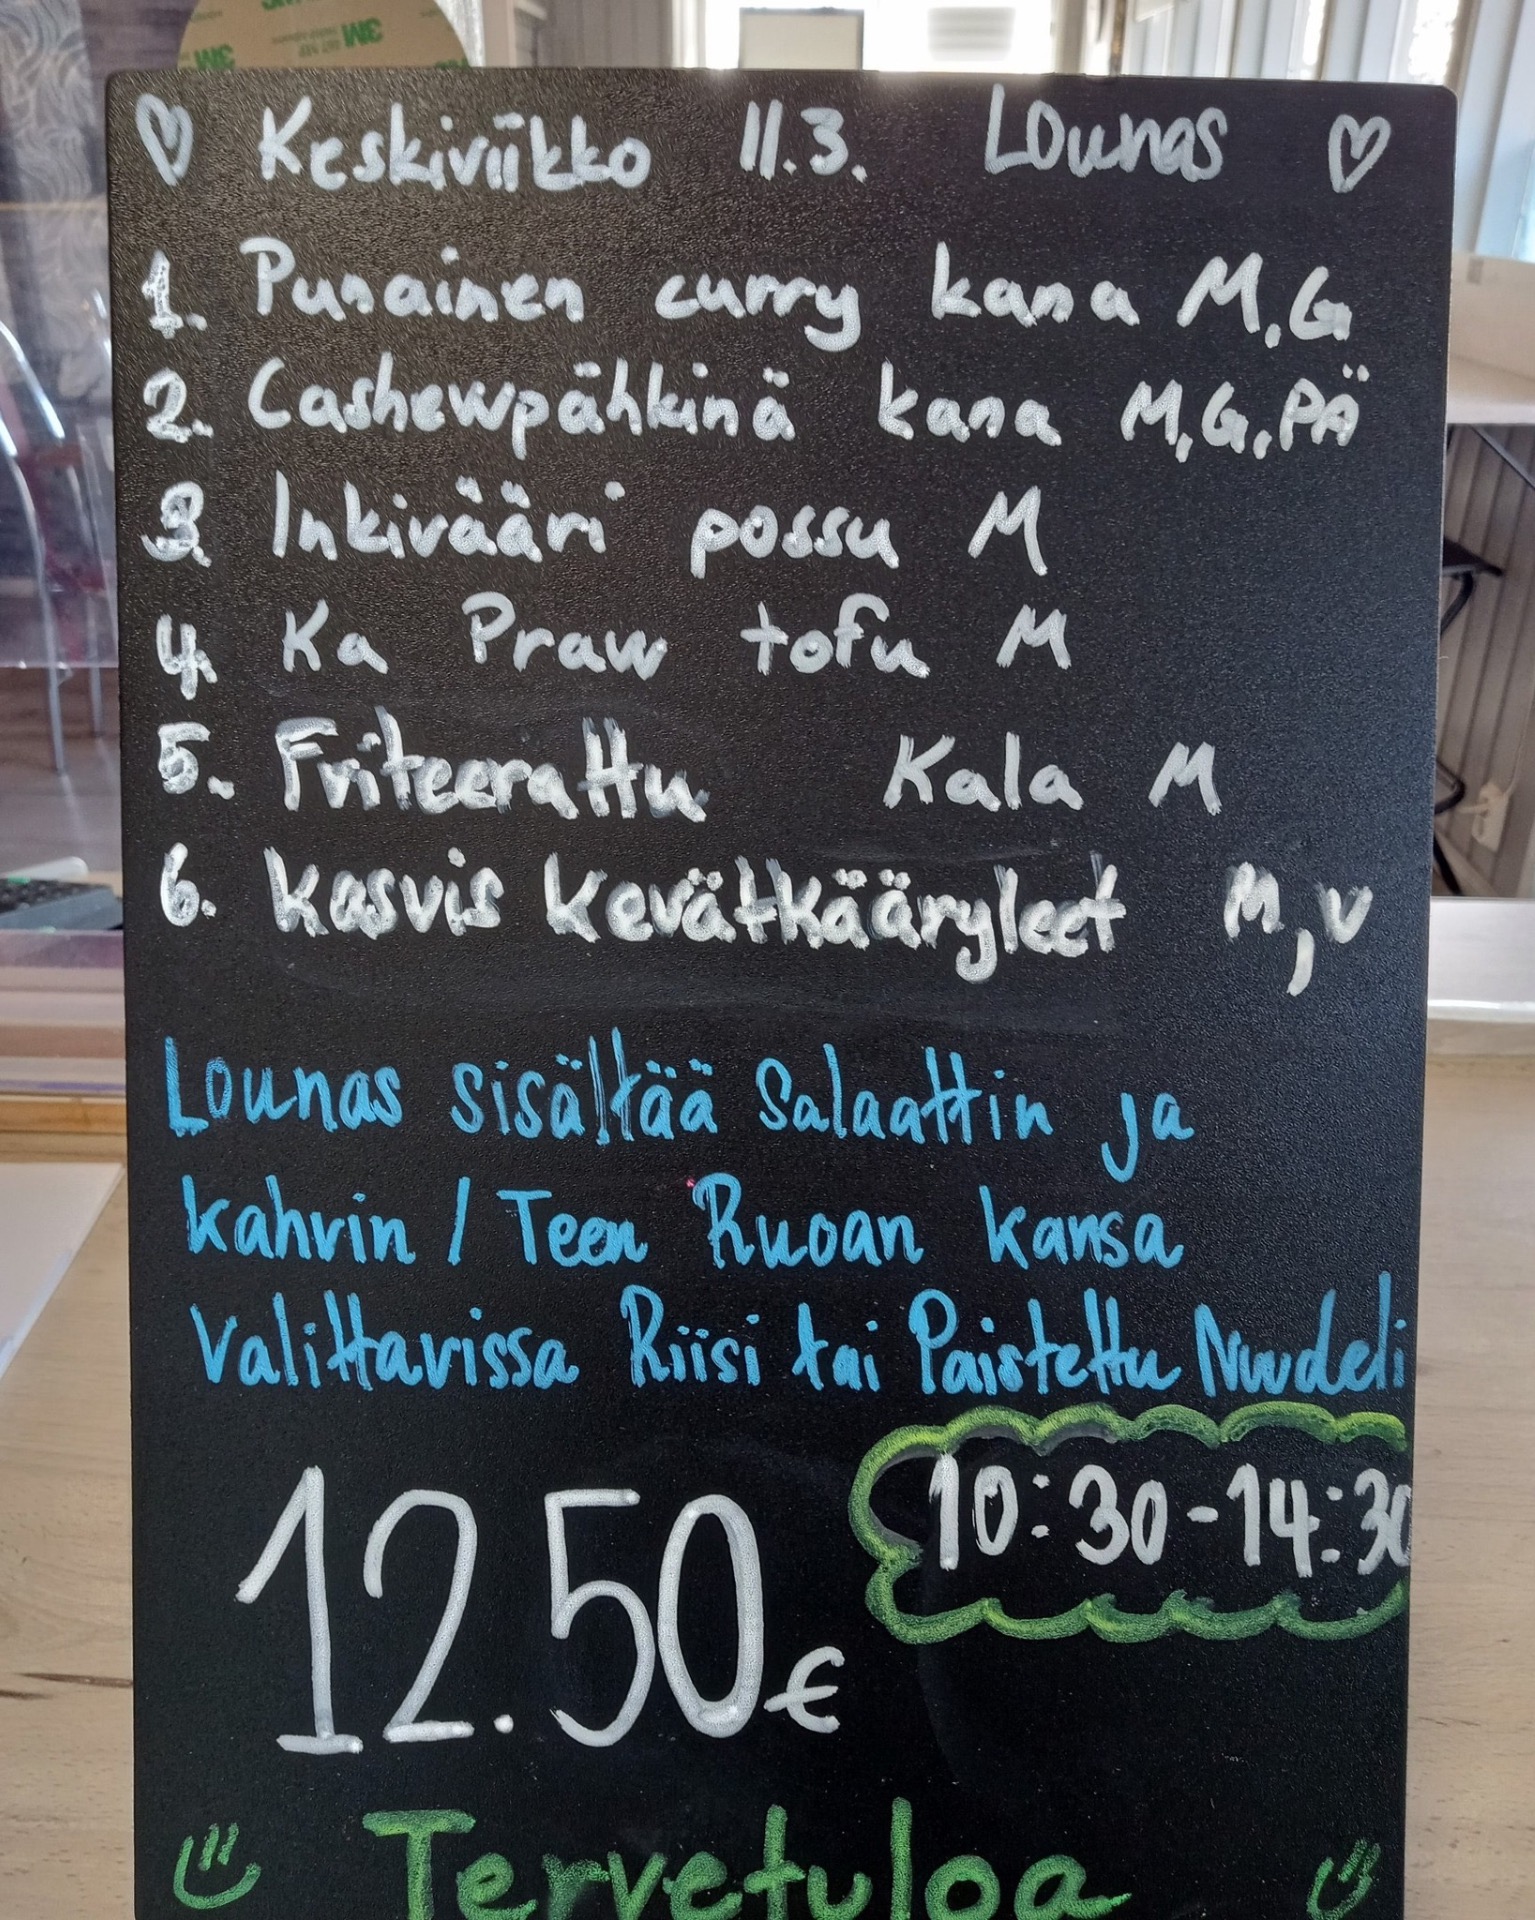 3M 3M
♡ Keskiviikko 11.3. Lounas ♡
1. Punainen curry kana M,G
2. Cashewpähkinä kana M,G,PÄ
3. Inkivääri possu M
4. Ka Praw tofu M
5. Friteerattu Kala M
6. Kasvis kevätkääryleet M,V
Lounas sisältää Salaattin ja
kahvin / Teen Ruoan kansa
Valittavissa Riisi tai Paistettu Nuudeli
10:30-14:30
12.50€
Tervetuloa